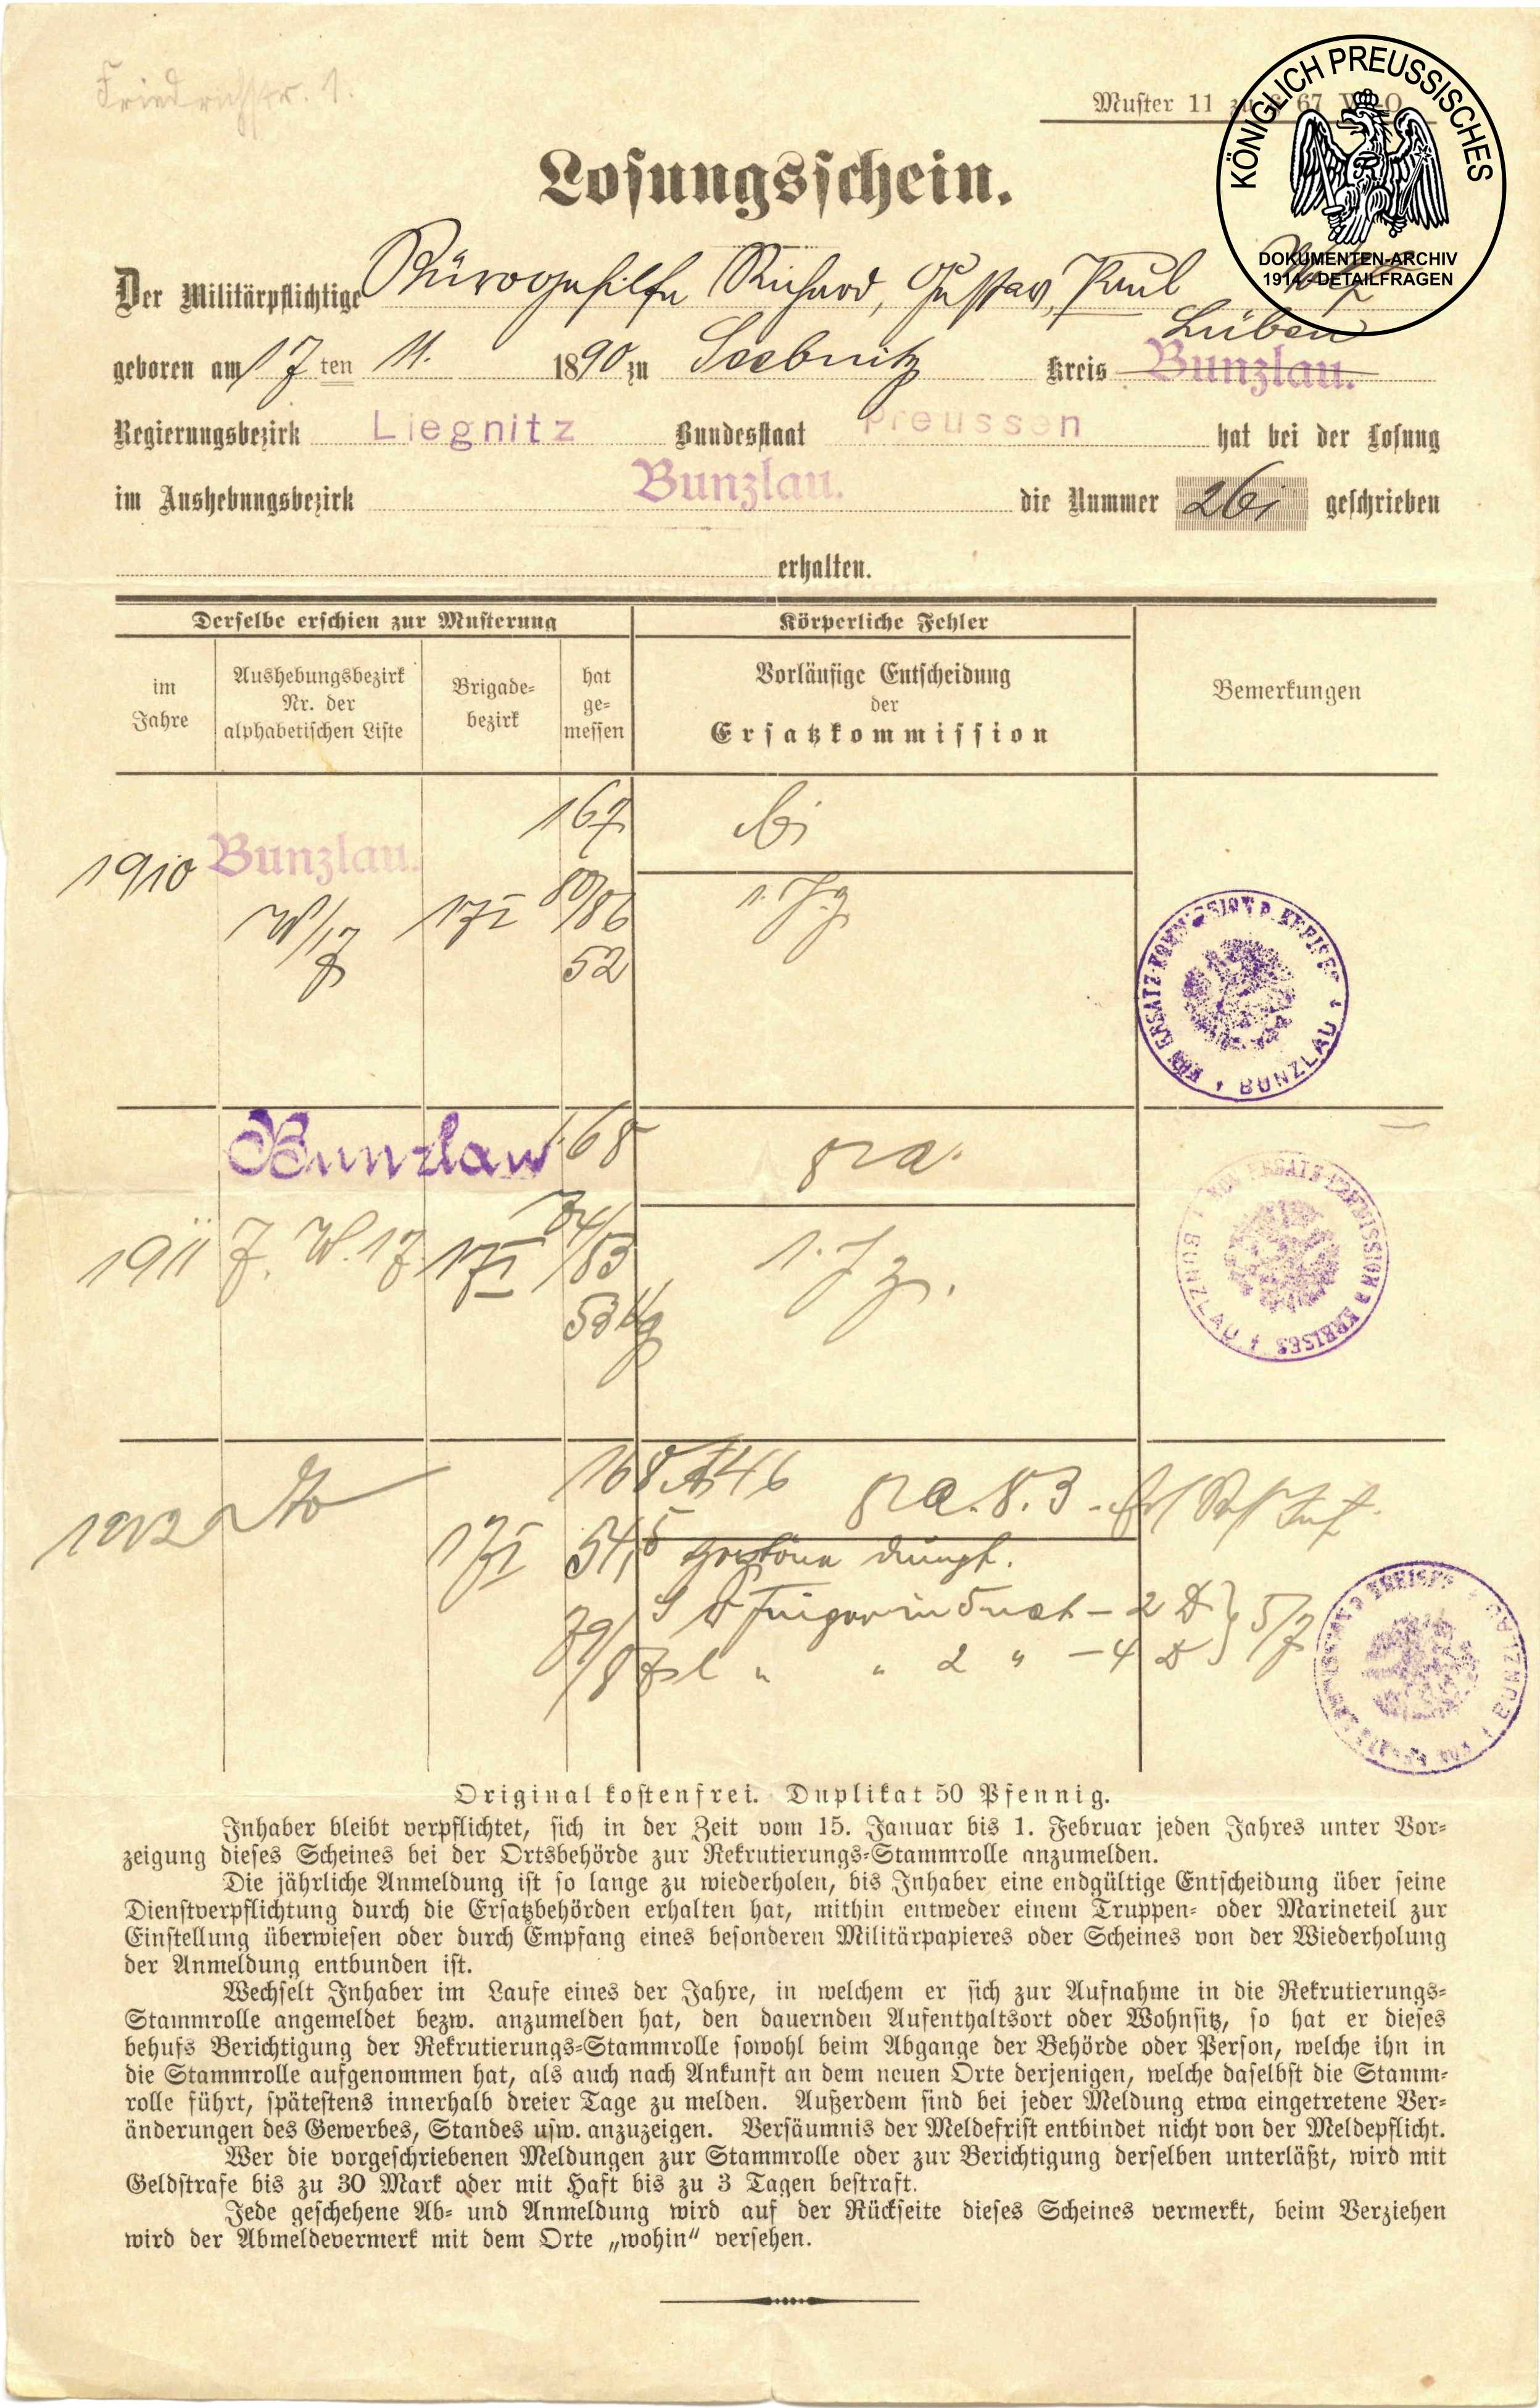 Friedrichstr. 1.
Muster 11 zu § 67 W.-O.
KÖNIGLICH PREUSSISCHES
DOKUMENTEN-ARCHIV
1914-DETAILFRAGEN
Losungsschein.
Der Militärpflichtige Bürogehilfe Richard, Gustav, Paul
Lüben
geboren am 17ten 11. 1890 zu Seebnitz Kreis Bunzlau.
Regierungsbezirk Liegnitz Bundesstaat Preussen hat bei der Losung
im Aushebungsbezirk Bunzlau. die Nummer geschrieben
erhalten.
Derselbe erschien zur Musterung Körperliche Fehler
im Jahre
Aushebungsbezirk Nr. der alphabetischen Liste
Brigade-bezirk
hat ge-messen
Vorläufige Entscheidung der Ersatzkommission
Bemerkungen
167
1910 Bunzlau.
W/17 17I 80/86
1. J. z.
52
KÖN ERSATZ-KOMMISSION D. KREISES BUNZLAU
Bunzlau 168
8 z a.
1911 J. W. 17. 17I /83
1. J z.
53 kg
KÖN ERSATZ-COMMISSION D KREISES BUNZLAU
1912 dto 168 A 46 8 z a. 8. 3
17I 54,5
79/87
l " " 2 " – 4 D
KREISES BUNZLAU
Original kostenfrei. Duplikat 50 Pfennig.
Inhaber bleibt verpflichtet, sich in der Zeit vom 15. Januar bis 1. Februar jeden Jahres unter Vor-
zeigung dieses Scheines bei der Ortsbehörde zur Rekrutierungs-Stammrolle anzumelden.
Die jährliche Anmeldung ist so lange zu wiederholen, bis Inhaber eine endgültige Entscheidung über seine
Dienstverpflichtung durch die Ersatzbehörden erhalten hat, mithin entweder einem Truppen- oder Marineteil zur
Einstellung überwiesen oder durch Empfang eines besonderen Militärpapieres oder Scheines von der Wiederholung
der Anmeldung entbunden ist.
Wechselt Inhaber im Laufe eines der Jahre, in welchem er sich zur Aufnahme in die Rekrutierungs-
Stammrolle angemeldet bezw. anzumelden hat, den dauernden Aufenthaltsort oder Wohnsitz, so hat er dieses
behufs Berichtigung der Rekrutierungs-Stammrolle sowohl beim Abgange der Behörde oder Person, welche ihn in
die Stammrolle aufgenommen hat, als auch nach Ankunft an dem neuen Orte derjenigen, welche daselbst die Stamm-
rolle führt, spätestens innerhalb dreier Tage zu melden. Außerdem sind bei jeder Meldung etwa eingetretene Ver-
änderungen des Gewerbes, Standes usw. anzuzeigen. Versäumnis der Meldefrist entbindet nicht von der Meldepflicht.
Wer die vorgeschriebenen Meldungen zur Stammrolle oder zur Berichtigung derselben unterläßt, wird mit
Geldstrafe bis zu 30 Mark oder mit Haft bis zu 3 Tagen bestraft.
Jede geschehene Ab- und Anmeldung wird auf der Rückseite dieses Scheines vermerkt, beim Verziehen
wird der Abmeldevermerk mit dem Orte „wohin“ versehen.